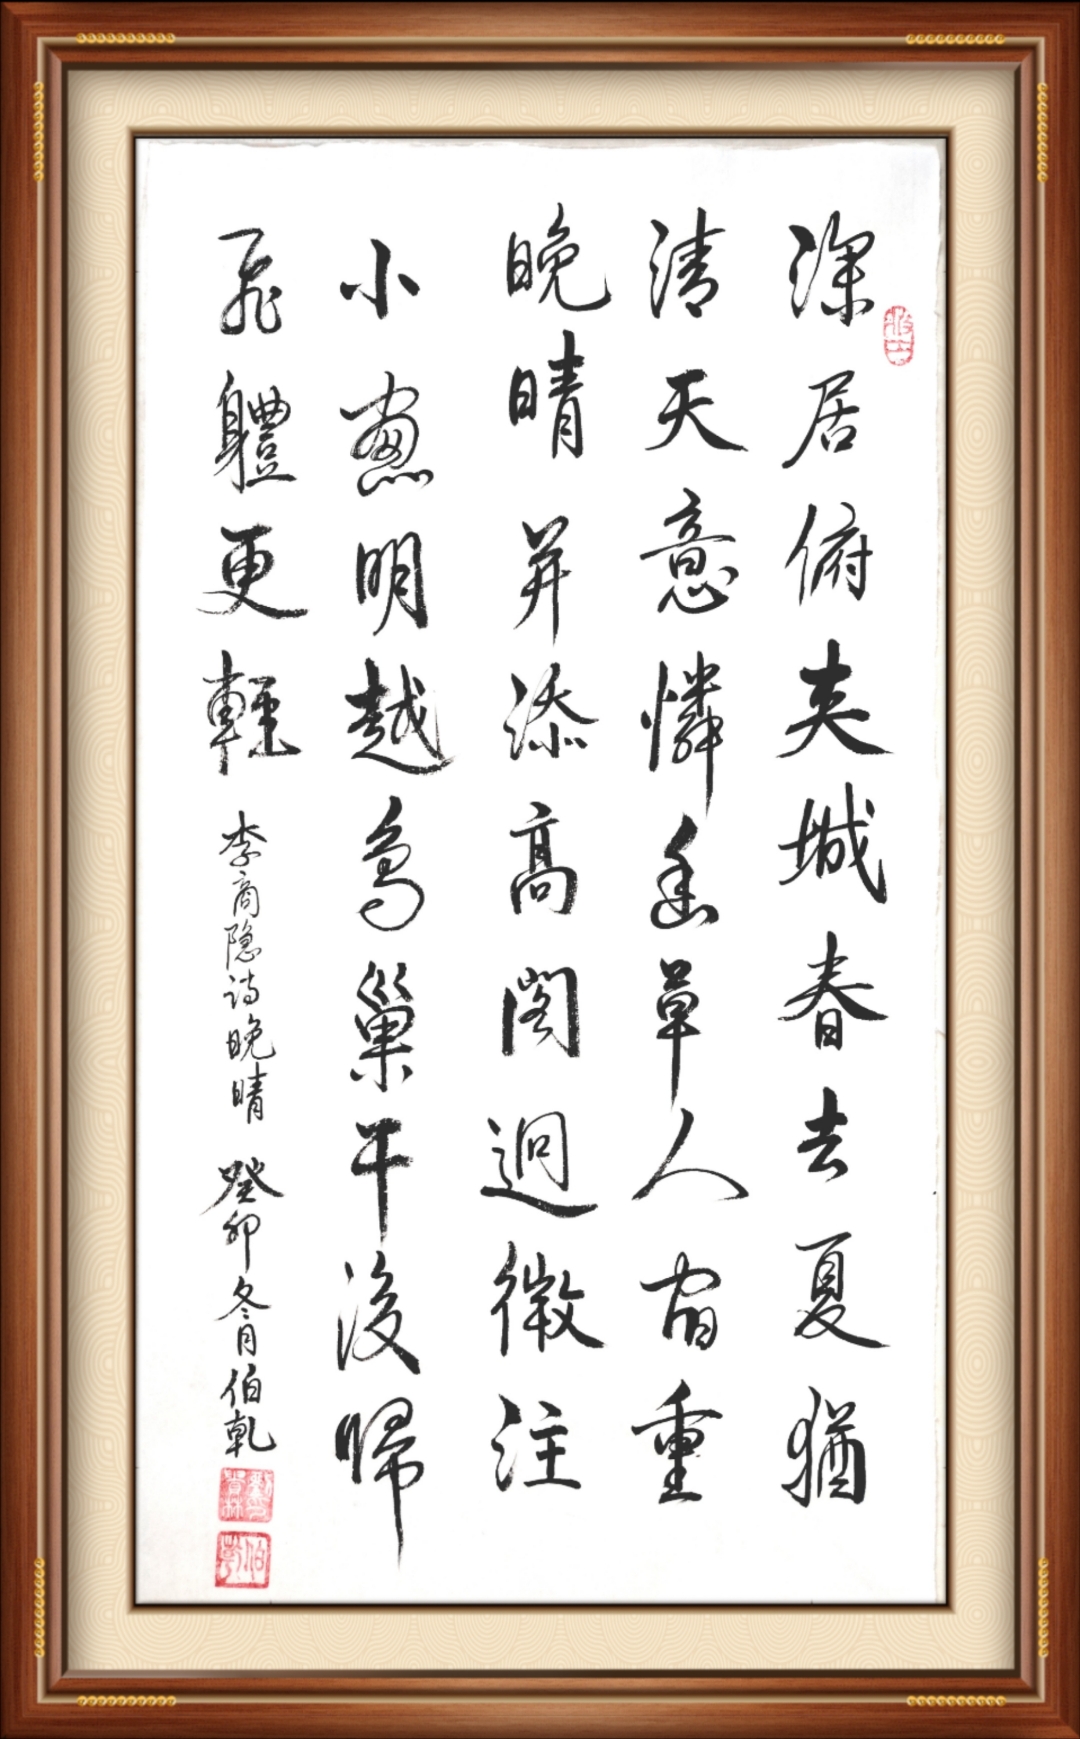 深居俯夹城春去夏猶
清天意憐幽草人间重
晚晴并添高阁迥微注
小窻明越鸟巢干後歸
飛體更輕
李商隐诗晚晴 癸卯冬月伯乾
伯乾